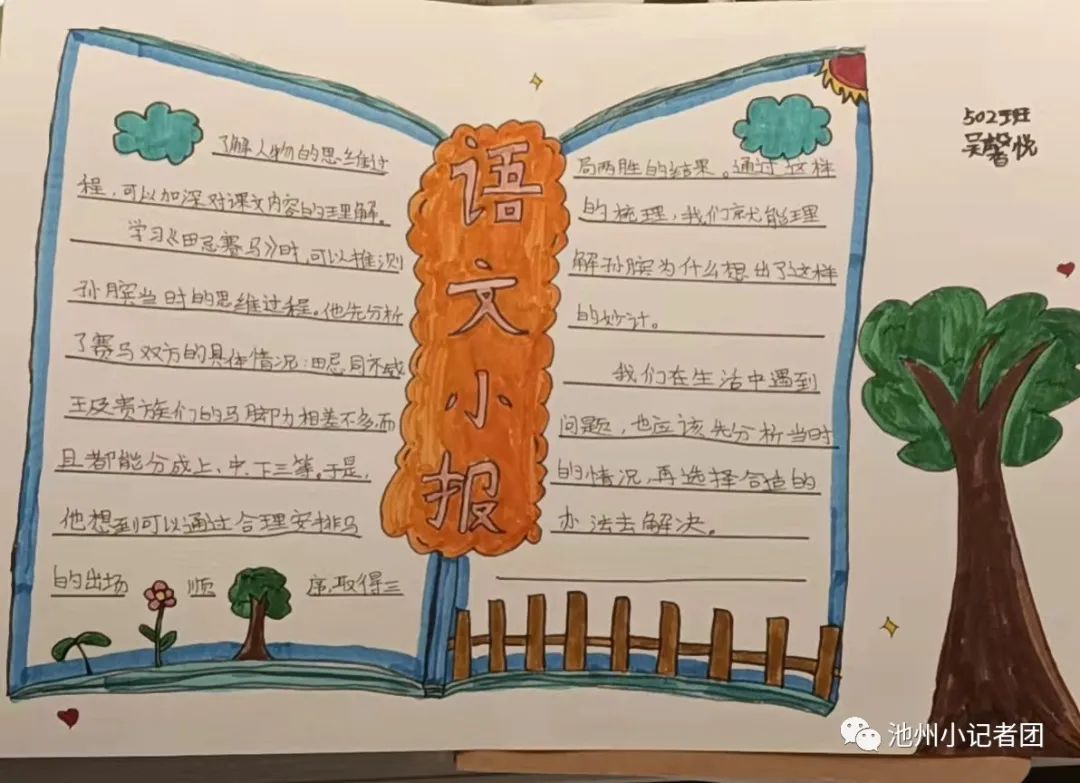 语文小报
502班
吴馨悦
了解人物的思维过
程，可以加深对课文内容的理解。
学习《田忌赛马》时，可以推测
孙膑当时的思维过程。他先分析
了赛马双方的具体情况：田忌同齐威
王及贵族们的马脚力相差不多，而
且都能分成上、中、下三等。于是，
他想到可以通过合理安排马
的出场 顺 序，取得三
局两胜的结果。通过这样
的梳理，我们就能理
解孙膑为什么想出了这样
的妙计。
我们在生活中遇到
问题，也应该先分析当时
的情况，再选择合适的
办法去解决。
池州小记者团